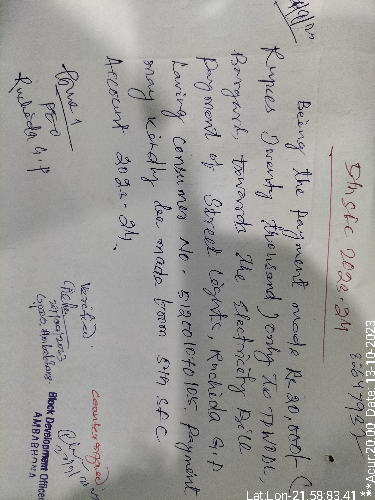 5th SFC 2023-24
Being the payment made Rs 20,000/- (
Rupees Twenty thousand) only to TPWODL,
Bargarh, towards the Electricity Bill
payment of Street Lights, Ruchida G.P
having Consumer No-
payment
may kindly be made from 5th SFC
Account 2023-24.
PEO
Ruchida G.P
Verified
Countersigned
Block Development Officer
AMBABHONA
Lat:Lon-21.58:83.41 **Acur:20.00 Date,13-10-2023